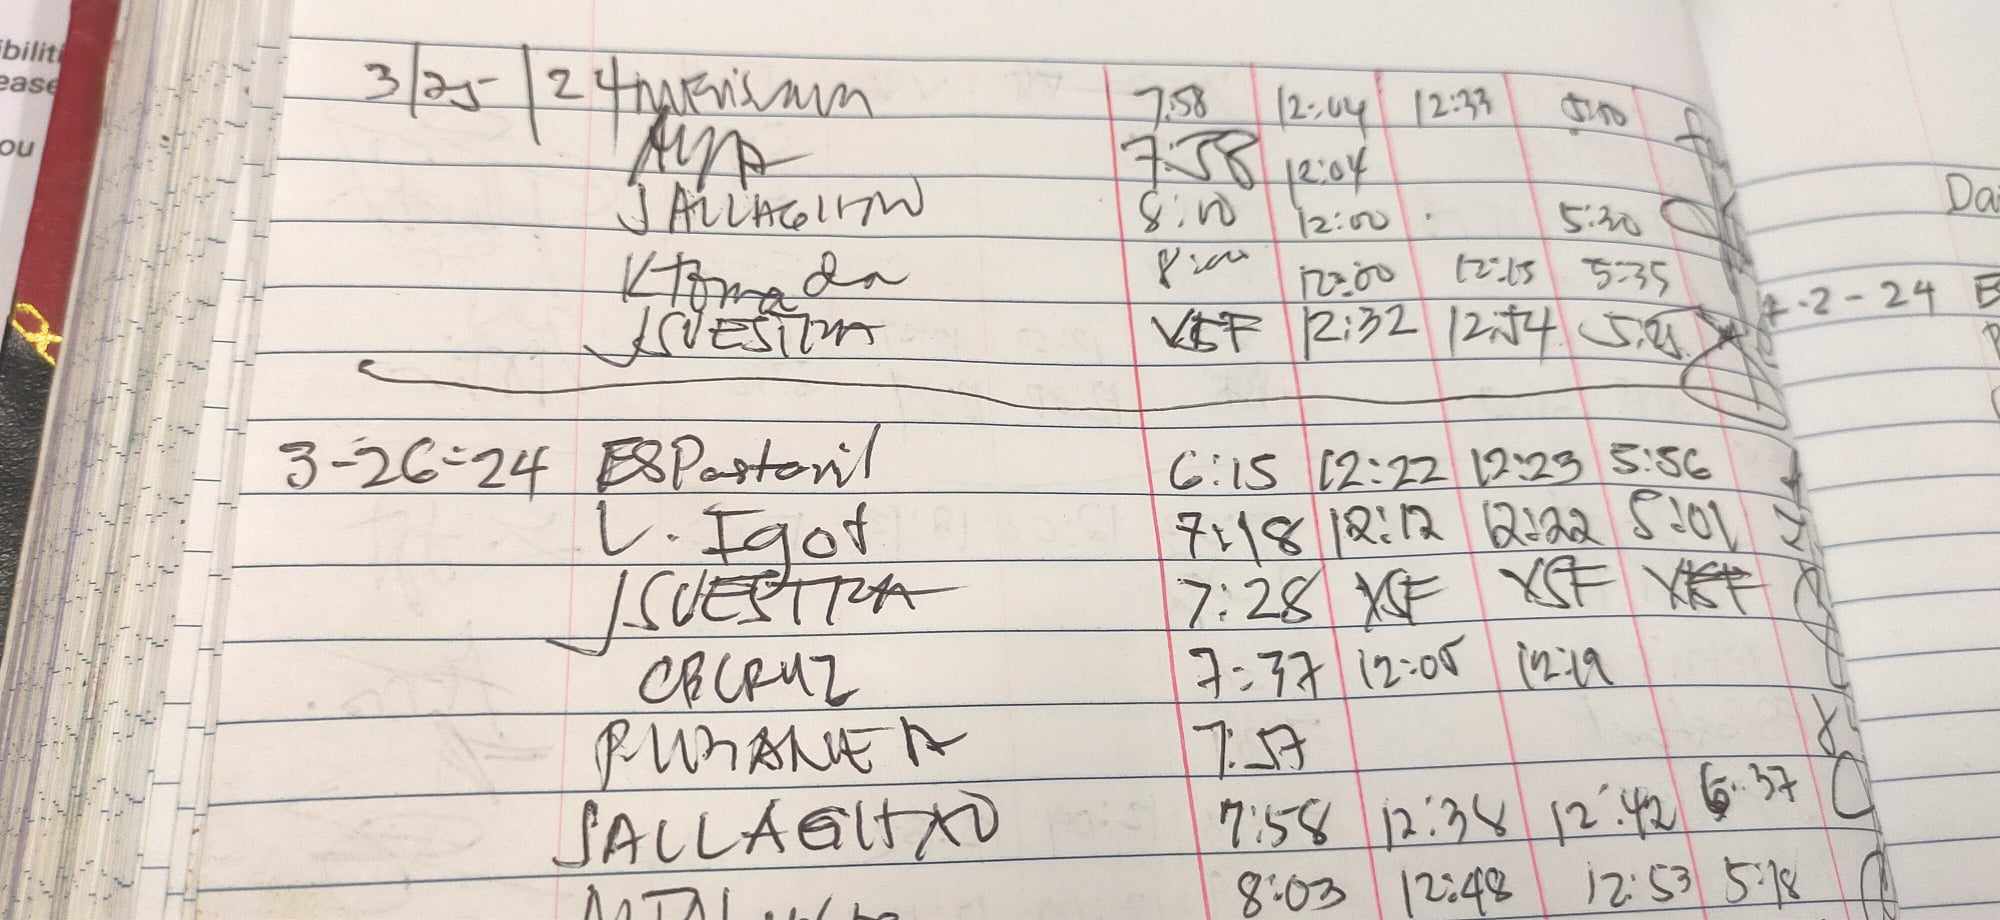 ibiliti
ease
ou
3/25/24 7:58 12:04 12:33 5:10
7:58 12:04
JALLAGITXO 8:10 12:00 5:30
KTomada 8:00 12:00 12:15 5:35
JSVESTRA XSF 12:32 12:54
3-26-24 ESPastoril 6:15 12:22 12:23 5:56
L. Igot 7:18 12:12 12:22 5:01
JSVESTRA 7:28 XSF XSF XSF
CBCRUZ 7:37 12:05 12:19
7:57
JALLAGITXO 7:58 12:38 12:42 6:37
8:03 12:48 12:53 5:18
Da
2-24